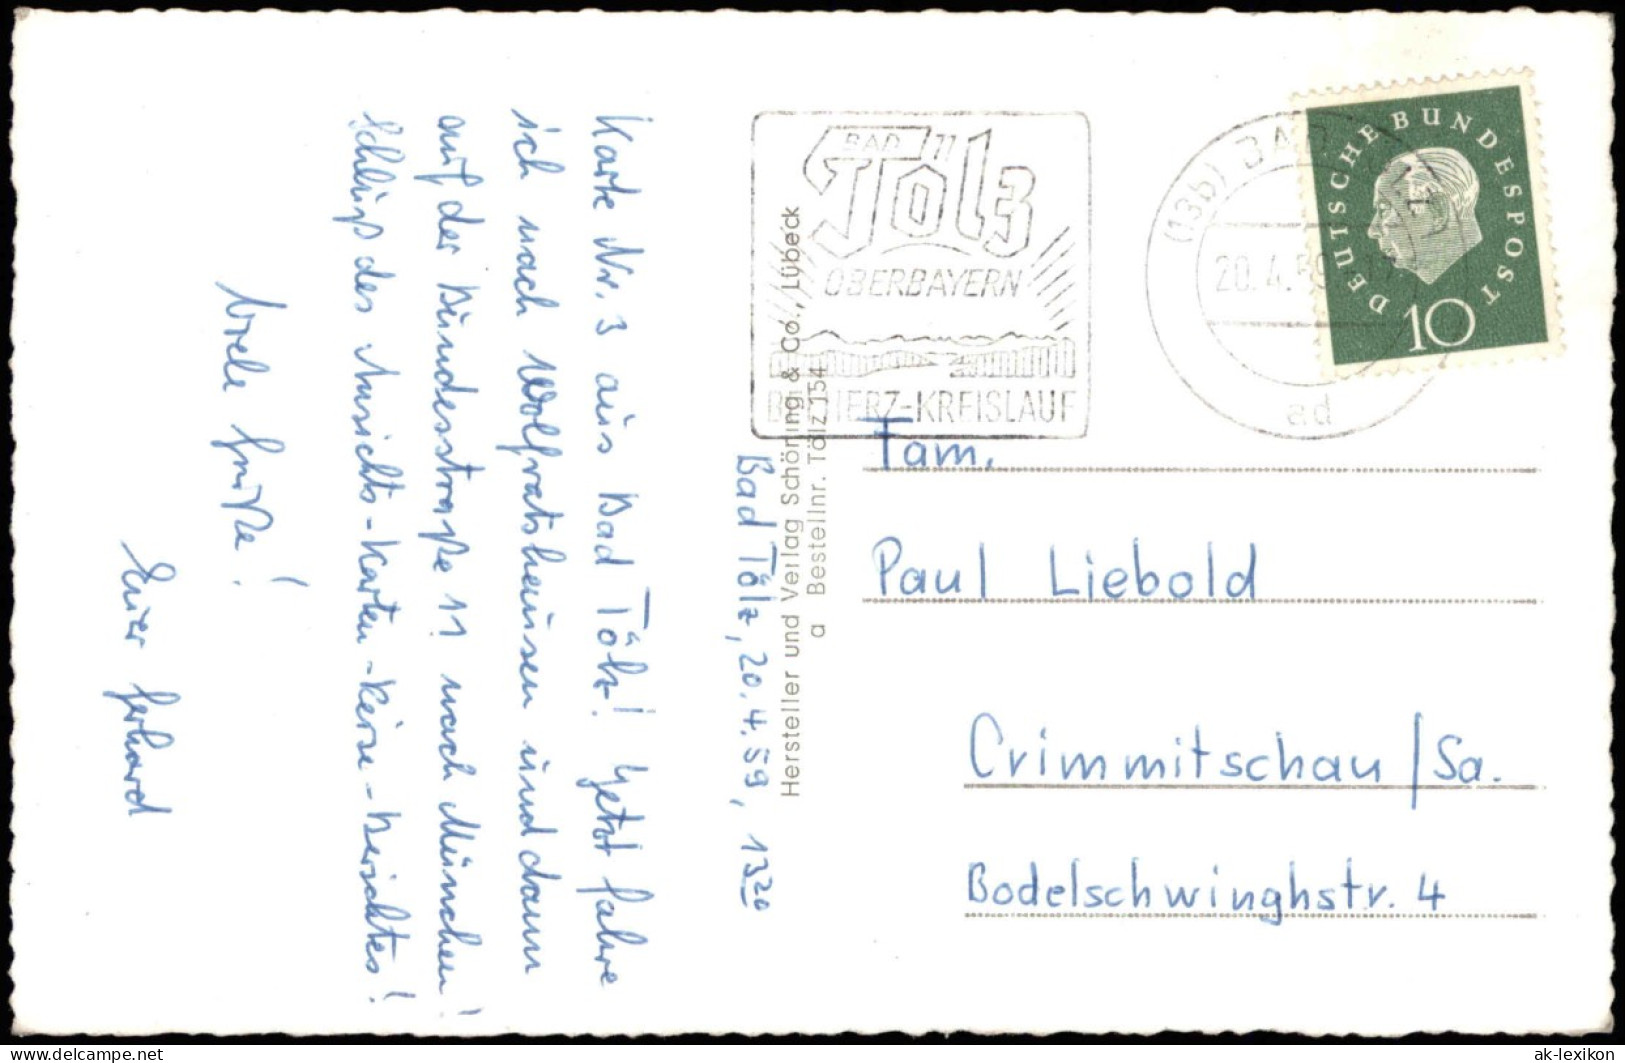 Bad Tölz, 20.4.59, 13 20
Karte Nr. 3 aus Bad Tölz! Jetzt fahre
ich nach Wolfratshausen und dann
auf der Bundesstraße 11 nach München!
Schluß des Ansichts-Karten-Reise-Berichtes!
Viele Grüße!
Euer Gerhard
Hersteller und Verlag Schöning & Co., Lübeck
a Bestellnr. Tölz 154
BAD
Tölz
OBERBAYERN
HERZ-KREISLAUF
(13b) BAD
20.4.59
ad
DEUTSCHE BUNDESPOST
10
Fam.
Paul Liebold
Crimmitschau/Sa.
Bodelschwinghstr. 4
ak-lexikon
delcampe.net